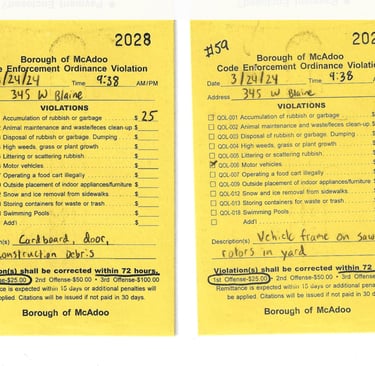 2028
Borough of McAdoo
Code Enforcement Ordinance Violation
/24/24 Time 9:38 AM/PM
345 W Blaine
VIOLATIONS
Accumulation of rubbish or garbage $ 25
Animal maintenance and waste/feces clean-up $
Disposal of rubbish or garbage. Dumping $
High weeds, grass or plant growth $
Littering or scattering rubbish $
Motor vehicles $
Operating a food cart illegally $
Outside placement of indoor appliances/furniture $
Snow and ice removal from sidewalks $
Storing containers for waste or trash $
Swimming Pools $
Add'l $
Cardboard, door,
construction Debris
Violation(s) shall be corrected within 72 hours.
Offense-$25.00 • 2nd Offense-$50.00 • 3rd Offense-$100.00
Remittance is expected within 15 days or additional penalties will
be applied. Citations will be issued if not paid in 30 days.
Borough of McAdoo
#59
202
Borough of McAdoo
Code Enforcement Ordinance Violation
Date 3/24/24 Time 9:38 AM
Address 345 W Blaine
VIOLATIONS
QOL-001 Accumulation of rubbish or garbage $
QOL-002 Animal maintenance and waste/feces clean-up $
QOL-003 Disposal of rubbish or garbage. Dumping $
QOL-004 High weeds, grass or plant growth $
QOL-005 Littering or scattering rubbish $
QOL-006 Motor vehicles $
QOL-007 Operating a food cart illegally $
QOL-009 Outside placement of indoor appliances/furniture $
QOL-012 Snow and ice removal from sidewalks $
QOL-013 Storing containers for waste or trash $
QOL-018 Swimming Pools $
Add'l $
Description(s) Vehicle frame on saw
rotors in yard
Violation(s) shall be corrected within 72 hours.
1st Offense-$25.00 • 2nd Offense-$50.00 • 3rd Offense-$
Remittance is expected within 15 days or additional penalties
be applied. Citations will be issued if not paid in 30 days.
Borough of McAdoo